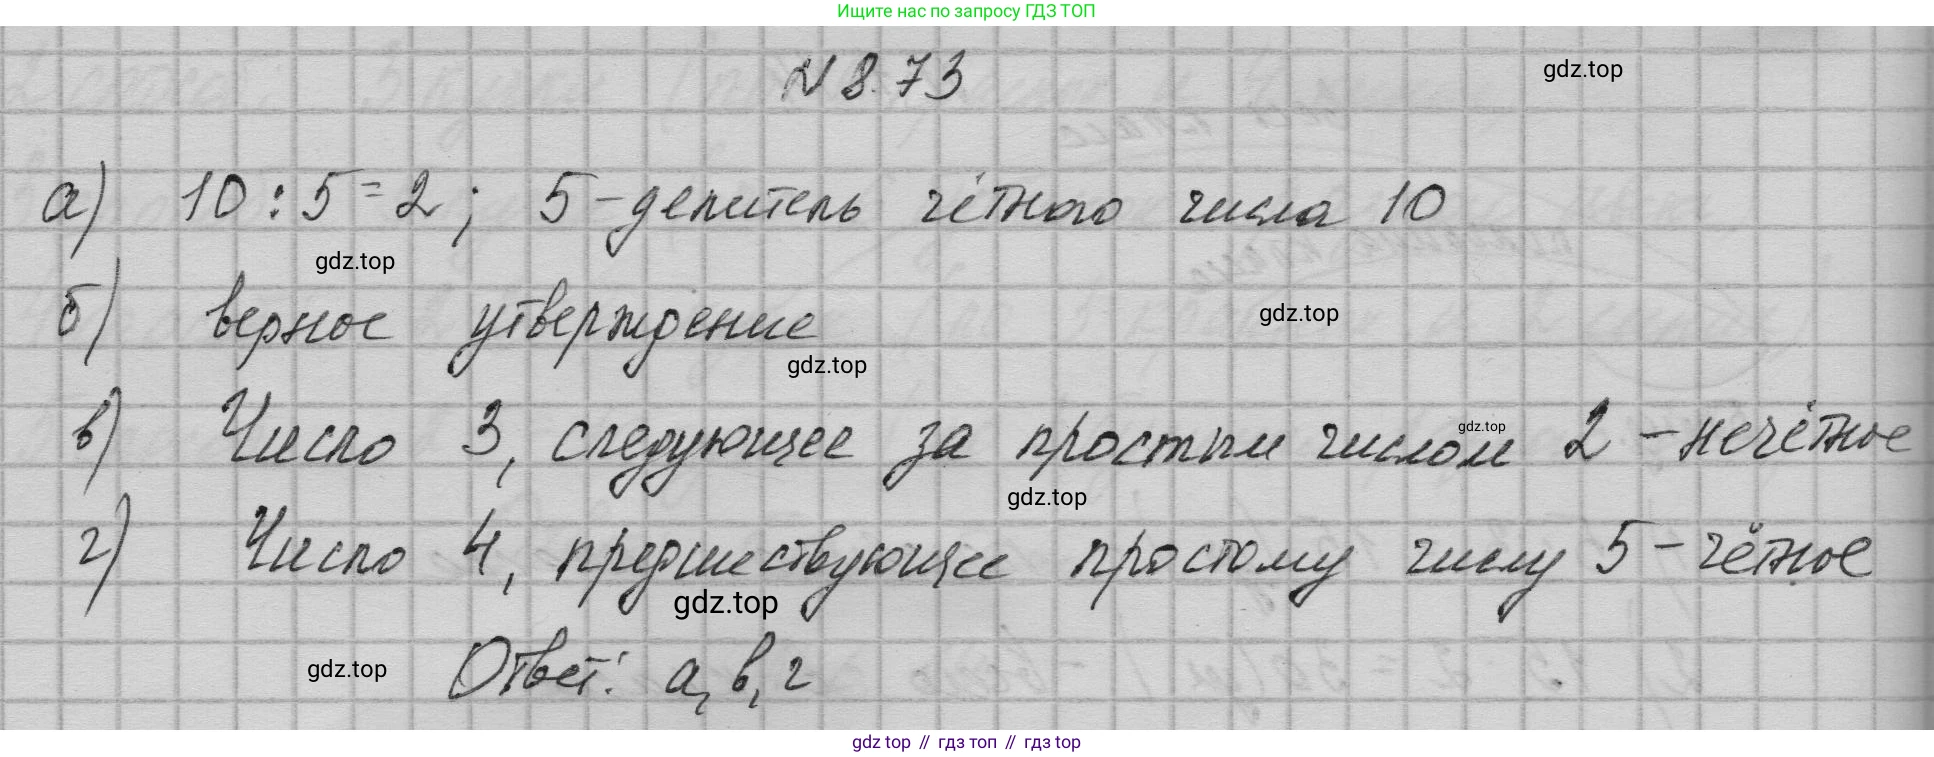 Ищите нас по запросу ГДЗ ТОП
N 8.73
gdz.top
а) 10 : 5 = 2 ; 5 - делитель чётного числа 10
gdz.top
б) верное утверждение
gdz.top
gdz.top
в) Число 3, следующее за простым числом 2 - нечётное
gdz.top
gdz.top
г) Число 4, предшествующее простому числу 5 - чётное
gdz.top
Ответ: а, в, г
gdz.top
gdz top // гдз топ // гдз top